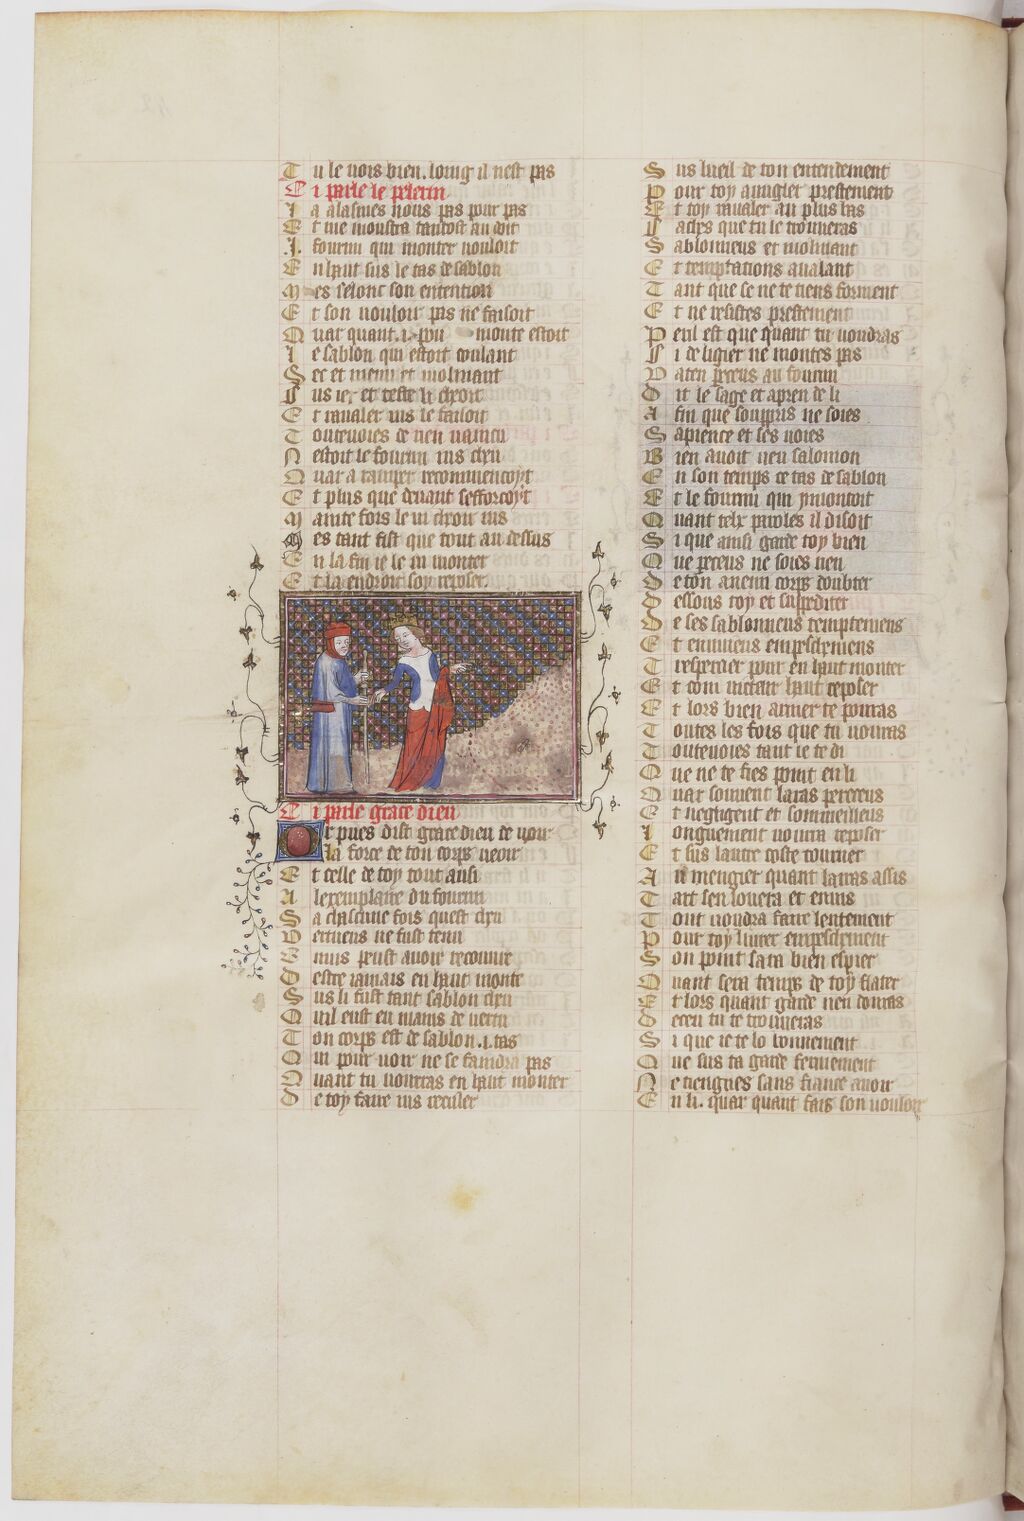 Tu le vois bien. loing il nest pas
Ci parle le pelerin
Ia alasmes nous pas pour pas
Et me moustra tantost au doit
.I. fourmi qui monter vouloit
En haut sus le tas de sablon
Mes selonc son entention
Et son vouloir pas ne faisoit
Quar quant .i. pou monte estoit
Le sablon qui estoit coulant
Sec et menu et molinant
Sus et teste li cheoit
Et ravaler ius le faisoit
Toutevoies de rien vaincu
Nestoit le fourmi ius cheu
Quar a ramper recommencoyt
Et plus que devant sefforcoyt
Mainte fois le vi cheoir ius
Mes tant fist que tout au dessus
En la fin ie le vi monter
Et la endroit soy reposer.
Ci parle grace dieu
Or pues dist grace dieu de voir
La force de ton corps veoir
Et celle de toy tout ausi
A lexemplaire du fourmi
Sa chascune fois quest cheu
Vertueus ne fust tenu
Ne mais peust avoir recouvre
Destre iamais en haut monte
Sus li fust tant sablon cheu
Quil eust en mains de vertu
Ton corps est de sablon .i. tas
Qui pour voir ne se faindra pas
Quant tu vourras en haut monter
De toy faire ius reculer
Sus lueil de ton entendement
Pour toy avugler prestement
Et toy ravaler au plus bas
Sachies que tu le trouveras
Sablonneus et molinant
Et temptations avalant
Tant que se ne te tiens forment
Et ne resistes prestement
Peril est que quant tu voudras
Si de ligier ne montes pas
Vaten pereceus au fourmi
Dit le sage et apren de li
Afin que souppris ne soies
Sapience et ses voies
Bien avoit veu salomon
En son temps ce tas de sablon
Et le fourmi qui ymontoit
Quant telx paroles il disoit
Si que ainsi garde toy bien
Que pereceus ne soies rien
De ton anemi corps doubter
Dessous toy et suppediter
De ses sablonneus tempteniens
Et ennuieus empeschemens
Trespercier pour en haut monter
Et com victeur haut reposer
Et lors bien amer te pourras
Toutes les fois que tu vouras
Toutevoies tant ie te di
Que ne te fies point en li
Quar souvent laras pereceus
Et negligent et sommeilleus
Longuement voura reposer
Et sus lautre coste tourner
Au mengier quant laras assis
Tart sen louera et envis
Tout voudra faire lentement
Pour toy livrer empeschement
Son point sara bien espier
Quant sera temps de toy flater
Et lors quant garde nen douras
Deceu tu te trouveras
Si que ie te lo bonnement
Que sus ta garde fermement
Ne tiengnes sans fiance avoir
En li. quar quant fais son vouloir